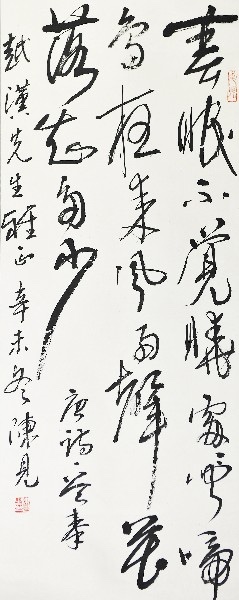 春眠不覺曉處々聞啼
鳥夜来風雨聲花
落知多少
唐詩
越漢先生雅正 辛未冬 陳見